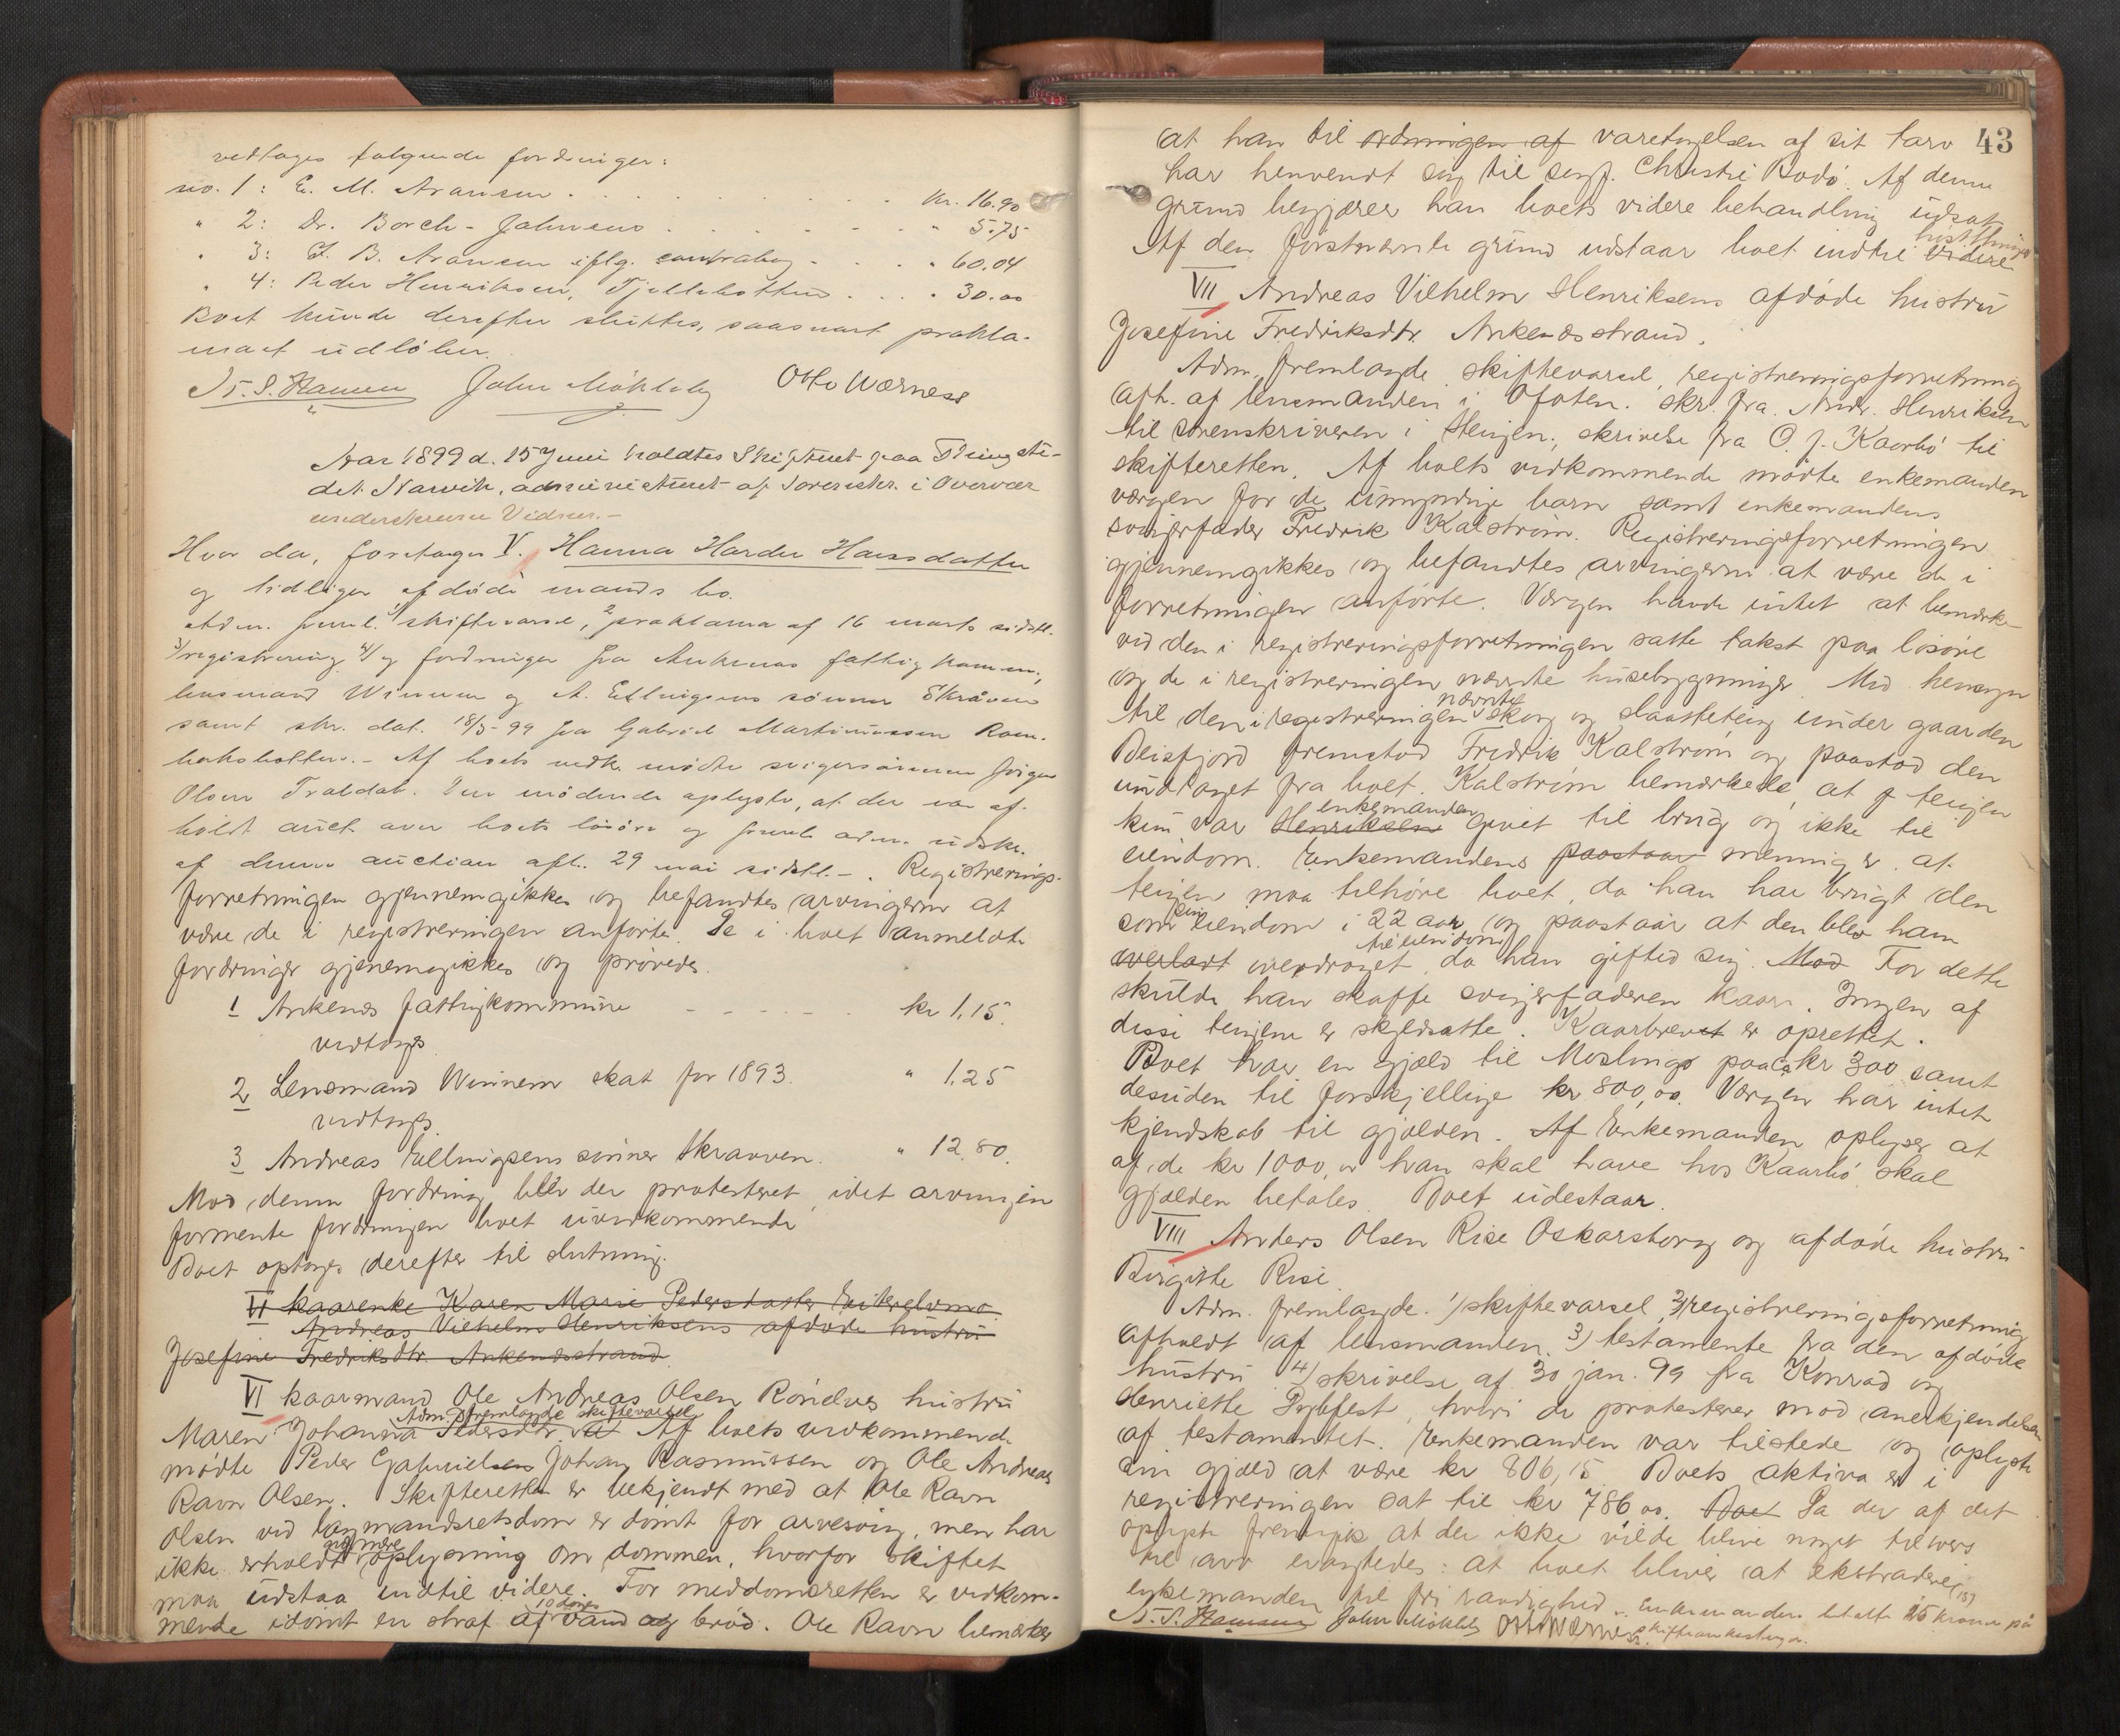 vedtages følgende fordringer:
no. 1: E. M. Aronsen . . . . . . . . . kr. 16.90
" 2: Dr. Borch-Johnsens . . . . . . " 5.75
" 3: E. B. Aronsen iflg. contrabog . . . . " 60.04
" 4: Peder Henriksen, Fjellebotten . . . . 30.00
Boet kunde derefter sluttes, saasnart prokla-
mact udløber.
N. S. Hansen John Moholdt Otto Wærness
Aar 1899 d. 15 Juni holdtes Skifteret paa Thingste-
det Narvik, administreret af Sorenskr. i Overvær
underskrevne Vidner.-
Hvor da, foretages V. Hanna Harder Hansdatter
og tidligere afdøde mands bo.
Adm. freml. 1 skiftevarsel, 2 proklama af 16 marts sidstl.
3/ registrering 4/ og fordringer fra Ankenes fattigkommune,
lensmand Winnem og A. Ellingsens sønner Skråven
samt skr. dat. 18/5-99 fra Gabriel Martinussen Rom-
baksbotten.- Af boets vedk. mødte svigersønnen Jørgen
Olsen Traldal. Den mødende oplyste, at der var af-
holdt auct. over boets løsøre og freml. adm. udskr.
af denne auction afh. 29 mai sidstl.-. Registrerings-
forretningen gjennemgikkes og befandtes arvingerne at
være de i registreringen anførte. De i boet anmeldte
fordringer gjenemgikkes og prøvedes.
1 Ankenes fattigkommune - - - - - kr 1.15.
vedtoges
2 Lensmand Winnem skat for 1893. " 1.25
vedtoges.
3 Andreas Ellingsens sønner Skraaven. " 12.80.
Mod denne fordring blev der protesteret, idet arvingen
formente fordringen boet uvedkommende
Boet optoges derefter til slutning.
VI kaarenke Karen Marie Pedersdatter
Andreas Vilhelm Henriksens afdøde hustru
Josefine Fredriksdtr. Ankenesstrand.
VI kaarmand Ole Andreas Olsen Røndves hustru
Adm. fremlagde skiftevarsel
Maren Johanna Pedersdtr. Af boets vedkommende
mødte Peder Gabrielsen Johan Rasmussen og Ole Andreas
Ravn Olsen. Skifteretten er bekjendt med at Ole Ravn
Olsen ved lagmandsretsdom er dømt for arvesvig, men har
nærmere
ikke erholdt oplysning om dommen, hvorfor skiftet
maa udstaa indtil videre. For meddomsretten er vedkom-
10 dages
mende idømt en straf af vand og brød. Ole Ravn bemærker
43
at han til ordningen af varetagelsen af sit tarv
har henvendt sig til sagf. Christie Bodø. Af denne
grund begjærer han boets videre behandling udsat
høstthinget
Af den førstnævnte grund udstaar boet indtil videre
VII Andreas Vilhelm Henriksens afdøde hustru
Josefine Fredriksdtr. Ankenesstrand.
Adm. fremlagde skiftevarsel, registreringsforretning
afh. af lensmanden i Ofoten. skr. fra Andr. Henriksen
til sorenskriveren i Steigen, skrivelse fra O. J. Kaarbø til
skifteretten. Af boets vedkommende mødte enkemanden
værgen for de umyndige barn samt enkemandens
svigerfader Fredrik Kalstrøm. Registreringsforretningen
gjennemgikkes og befandtes arvingerne at være de i
forretningen anførte. Værgen havde intet at bemærke
ved den i registreringsforretningen satte takst paa løsøre
og de i registreringen nævnte husebygninger. Med hensyn
nævnte
til den i registreringen skog og slaatteteig under gaarden
Beisfjord fremstod Fredrik Kalstrøm og paastod den
undtaget fra boet. Kalstrøm bemærkede, at teigen
enkemanden
kun var Henriksen givet til brug og ikke til
eiendom. Enkemandens paastaar mening er at
teigen maa tilhøre boet, da han har brugt den
sin
som eiendom i 22 aar og paastaar at den blev ham
til eiendom
overladt overdraget, da han gifted sig. Mod For dette
skulde han skaffe svigerfaderen kaar. Ingen af
disse teigene er skyldsatte. Kaarbrevet er oprettet.
Boet har en gjæld til Moslings paa ca kr 300 samt
desuden til forskjellige kr 800,00. Værgen har intet
kjendskab til gjælden. Af Enkemanden oplyser at
af de kr 1000,00 han skal have hos Kaarbø skal
gjælden betales. Boet udestaar.
VIII Anders Olsen Rise Oskarsborg og afdøde hustru
Birgitte Rise
Adm. fremlagde. 1) skiftevarsel, 2) registreringsforretning
afholdt af lensmanden. 3) testamente fra den afdøde
hustru 4) skrivelse af 30 jan. 99 fra Konrad og
Henriette, hvori de protesterer mod anerkjendelsen
af testamentet. Enkemanden var tilstede og oplyste
sin gjæld at være kr 806,15. Boets aktiva er i
registreringen sat til kr 786.00. Boet Da der af det
oplyste fremgik at der ikke vilde blive noget tilovers
til arv eragtedes: at boet bliver at ekstradere
enkemanden til fri raadighed. Enkemanden betalte 15 kroner på (15)
N. S. Hansen John Moholdt Otto Wærness skifteomkostninger.